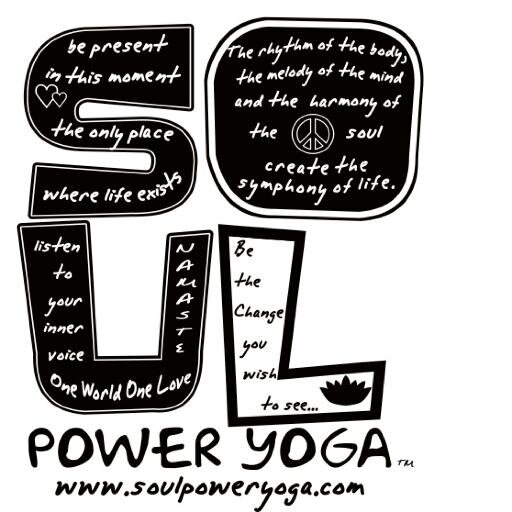 be present
in this moment
the only place
where life exists
The rhythm of the body,
the melody of the mind
and the harmony of
the soul
create the
symphony of life.
listen
to
your
inner
voice
NAMASTE
One World One Love
Be
the
Change
you
wish
to see...
SOUL
POWER YOGA™
www.soulpoweryoga.com